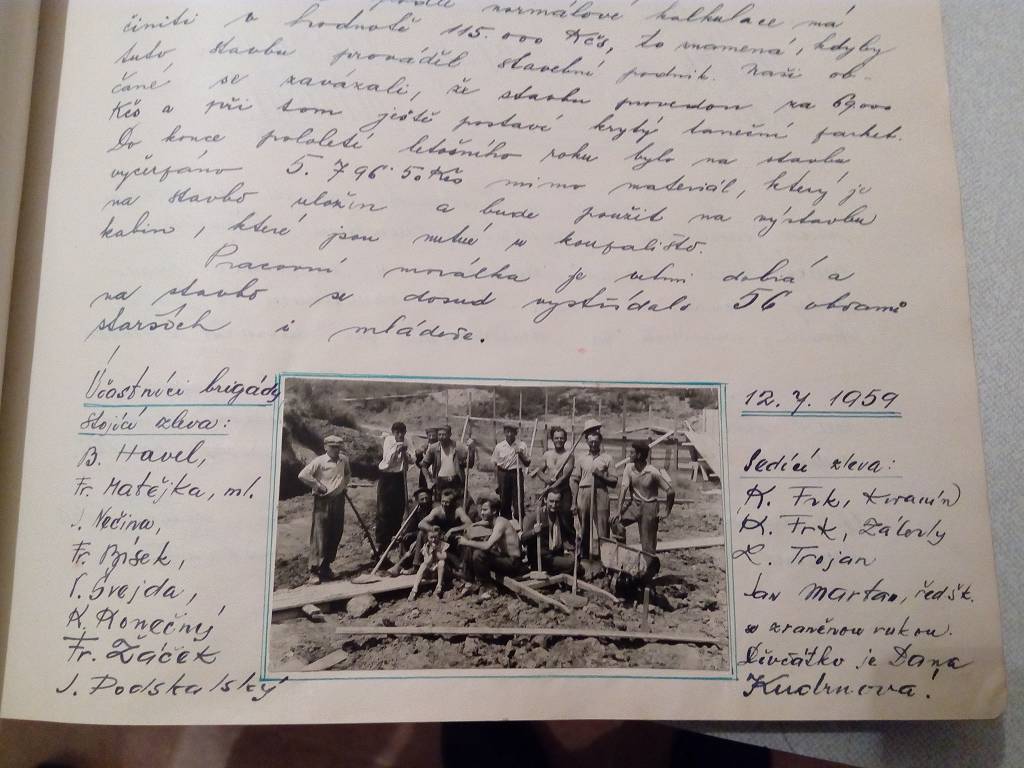 podle normálové kalkulace má
činiti v hodnotě 115.000 Kčs, to znamená, kdyby
tuto stavbu prováděl stavební podnik. Naši ob-
čané se zavázali, že stavbu provedou za 69000
Kčs a při tom ještě postaví krytý taneční parket.
Do konce pololetí letošního roku bylo na stavbu
vyčerpáno 5.796.50 Kčs mimo materiál, který je
na stavbě uložen a bude použit na výstavbu
kabin, které jsou nutné u koupaliště.
Pracovní morálka je velmi dobrá a
na stavbě se dosud vystřídalo 56 občanů
starších i mládeže.
Účastníci brigády
stojící zleva:
B. Havel,
Fr. Matějka, ml.
J. Nečina,
Fr. Bíšek,
Švejda,
K. Konečný
Fr. Žáček
J. Podskalský
12.7. 1959
Sedící zleva:
K. Frk,
K. Frk, Zálovly
Trojan
Jan Martan, řed. šk.
se zraněnou rukou.
Děvčátko je Dana
Kudrnová.